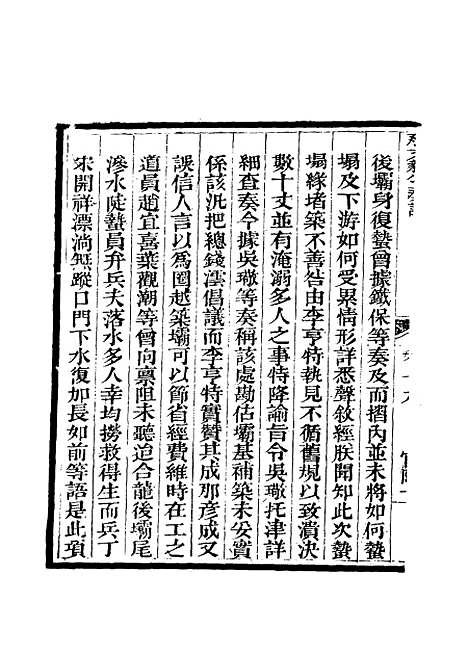 後壩身復蟄曾據鐵保等奏及而摺內並未將如何蟄
塌及下游如何受累情形詳悉聲敘經朕聞知此次蟄
塌緣堵築不善咎由李亨特執見不循舊規以致潰決
數十丈並有淹溺多人之事特降諭旨令吳璥托津詳
細查奏今據吳璥等奏稱該處勘估壩基補築未安實
係該汛把總錢澐倡議而李亨特實贊其成那彥成又
誤信人言以為圈越築壩可以節省經費維時在工之
道員趙宜喜葉觀潮等曾向稟阻未聽迨合龍後壩尾
滲水陡蟄員弁兵夫落水多人幸均撈救得生而兵丁
宋開祥漂淌無蹤口門下水復加長如前等語是此項